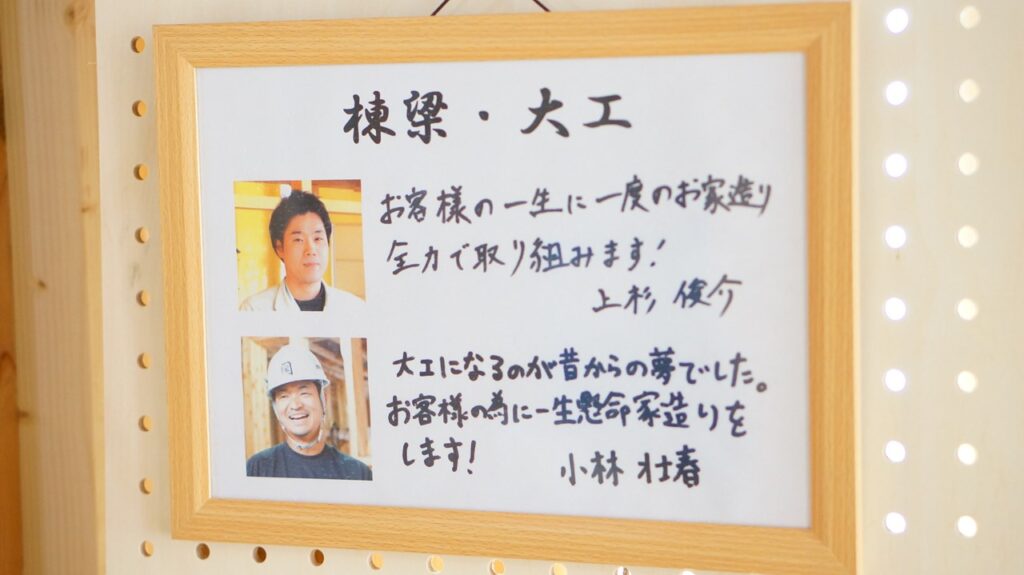 棟梁・大工
お客様の一生に一度のお家造り
全力で取り組みます!
上杉 俊介
大工になるのが昔からの夢でした。
お客様の為に一生懸命家造りを
します!
小林 壮春